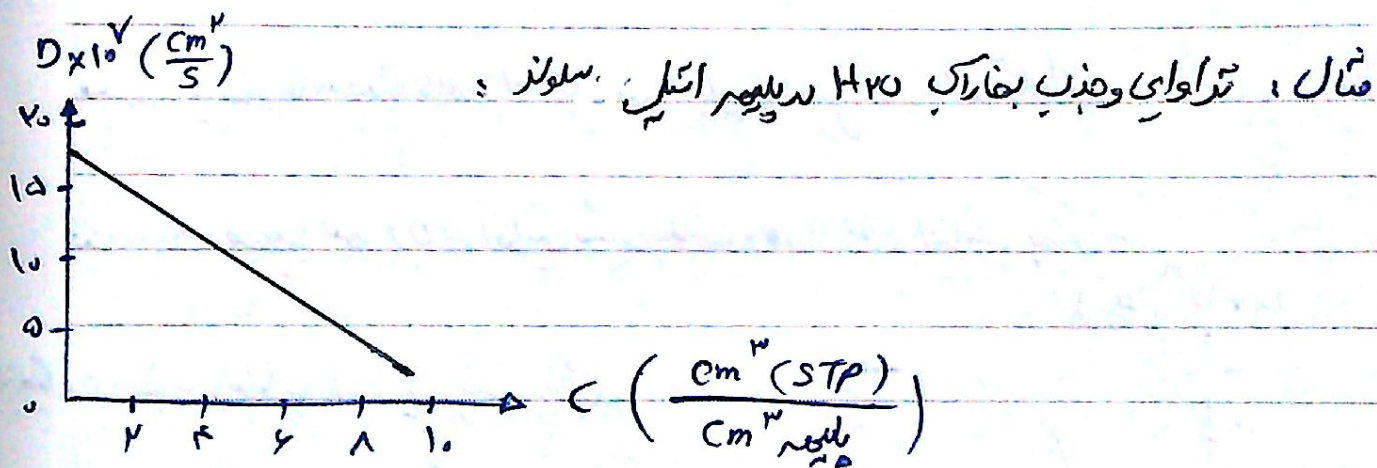 D×10^۷ (cm^۲/s)
مثال : تراوایی و جذب بخار آب H۲O در پلیمر اتیل سلولز :
۲۰
۱۵
۱۰
۵
۰
۲ ۴ ۶ ۸ ۱۰
C (cm^۳ (STP) / cm^۳ پلیمر)